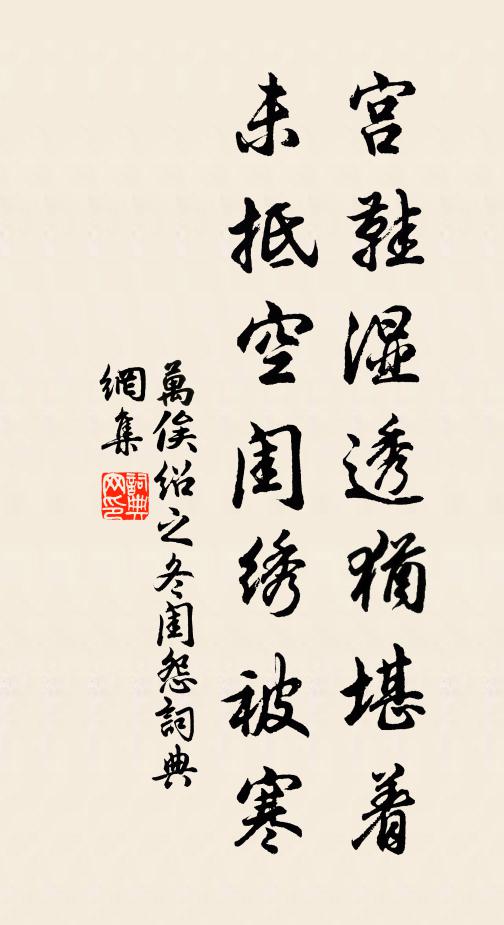 宫鞋湿透猶堪着
未抵空闺绣被寒
萬俟绍之冬闺怨詞典
網集
詞典
网印